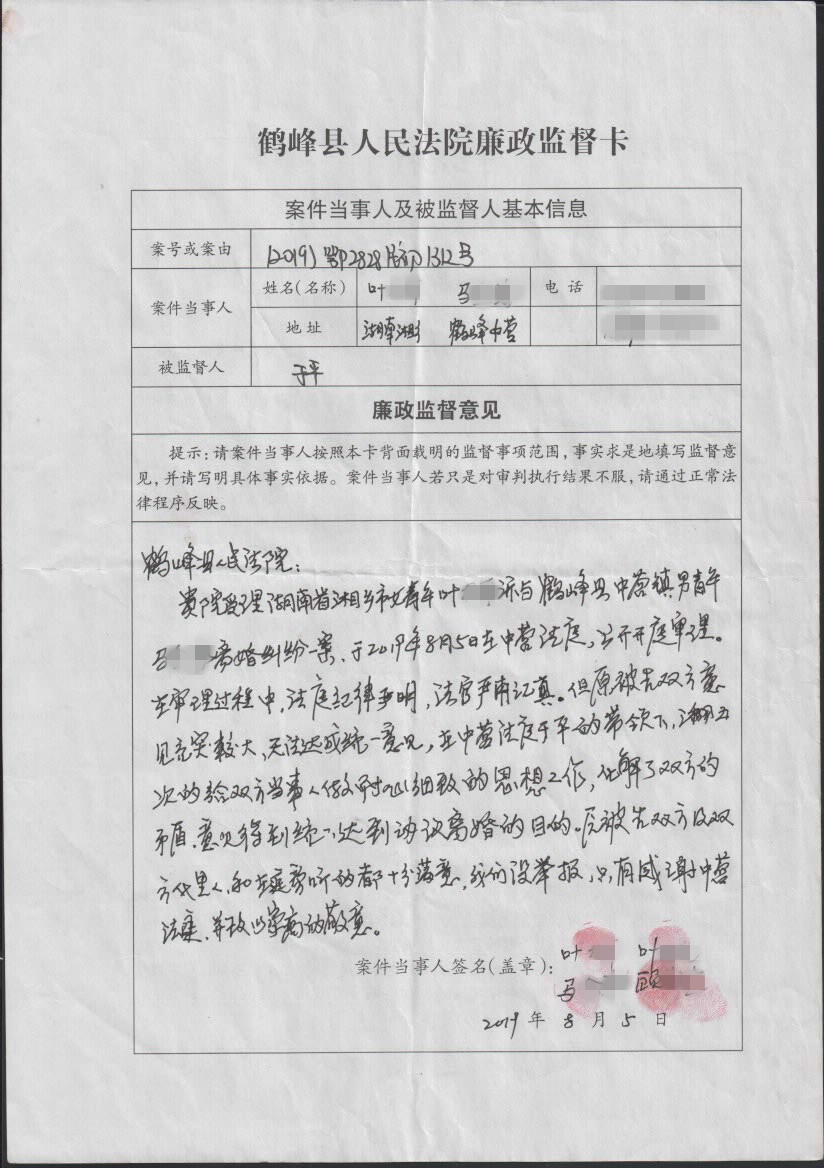 鹤峰县人民法院廉政监督卡
案件当事人及被监督人基本信息
案号或案由 (2019)鄂2828民初1312号
案件当事人 姓名(名称) 叶 马 电话
地址 湖南湘乡 鹤峰中营
被监督人 于平
廉政监督意见
提示:请案件当事人按照本卡背面载明的监督事项范围,事实求是地填写监督意
见,并请写明具体事实依据。案件当事人若只是对审判执行结果不服,请通过正常法
律程序反映。
鹤峰县人民法院:
贵院受理湖南省湘乡市女青年叶 诉与鹤峰县中营镇男青年
马 离婚纠纷一案,于2019年8月5日在中营法庭,公开开庭审理。
在审理过程中,法庭纪律严明,法官严肃认真。但原被告双方意
见充突较大,无法达成统一意见,在中营法庭于平的带领下,三番五
次的给双方当事人做耐心细致的思想工作,化解了双方的
矛盾,意见得到统一,达到协议离婚的目的。原被告双方及双
方代里人,和在庭旁听的都十分落意,我们没举报,只有感谢中营
法庭,并致以崇高的敬意。
案件当事人签名(盖章): 叶 叶
马
2019年8月5日